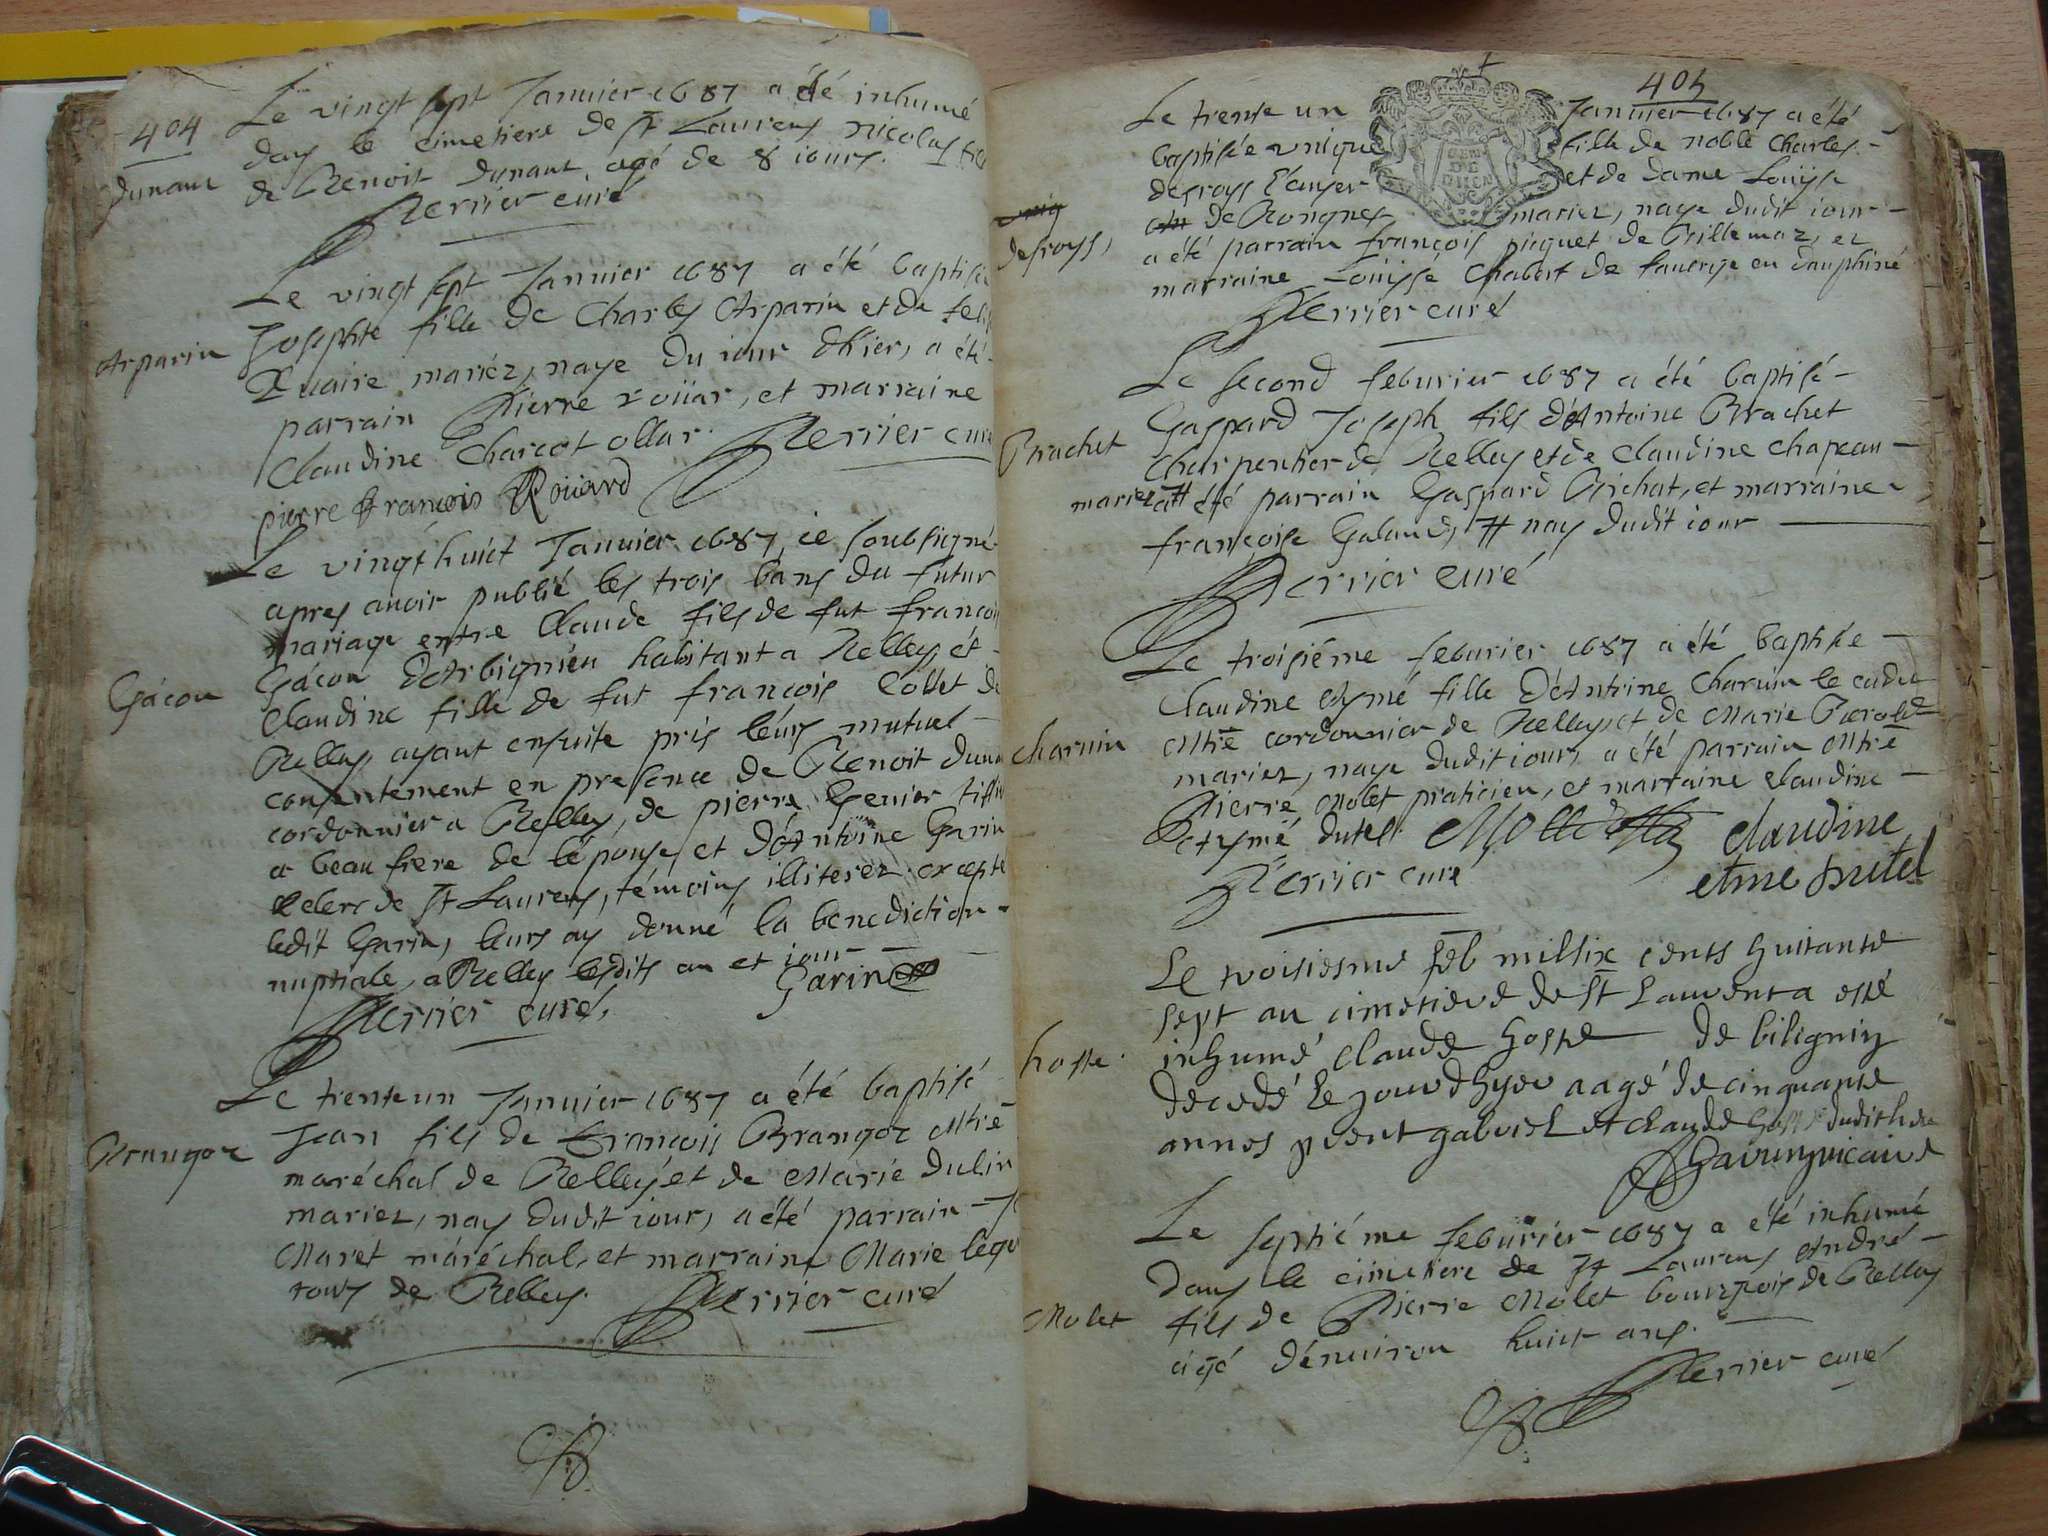 404
Le vingt sept Januier 1687 a été inhumé
dans le cimetiere de St Laurens nicolas
dunant
de Benoit dunant, agé de 8 iours.
Perrier curé
Le vingt sept Januier 1687 a été baptisée
Josephte fille de Charles Arparin et de
Arparin
mariez, naye du iour d'hier, a été
parrain Pierre roüar, et marraine
Claudine Charcot ollar. Perrier curé
pierre françois Roüard
Le vingt huict Januier 1687 ie soubsigné
apres auoir publié les trois bans du futur
mariage entre Claude fils de fut françois
Gácon
Gácon d'Arbignieu habitant a Belley et
Claudine fille de fut françois Collet de
Belley, ayant ensuite pris leurs mutuel
consentement en presence de Benoit dunant
cordonnier a Belley, de pierre Genier
a beau frere de l'épouse, et d'Antoine Garin
clerc de St Laurens, témoins illiterez excepté
ledit Garin, leurs ay donné la benediction
nuptiale, a Belley lesdits an et iour
Garin
Perrier curé,
Le trente un Januier 1687 a été baptisé
Brangoz
Jean fils de François Brangoz Mtre
maréchal de Belley et de Marie dulin
mariez, nay dudit iour, a été parrain
Maret maréchal, et marraine Marie
tous de Belley. Perrier curé
405
Le trente un Januier 1687 a été
baptisée vnique fille de noble Charles
desroys et de dame Louise
desroys,
de Rongnes mariez, naye dudit iour
a été parrain françois picquet de Prillemaz, et
marraine Loüise Chabert de en dauphiné
Perrier curé
Le second feburier 1687 a été baptisé
Gaspard Joseph fils d'Antoine Brachet
Brachet
charpentier de Belley et de Claudine Chapeau
mariez # a été parrain Gaspard Richat, et marraine
françoise Galand, # nay dudit iour
Perrier curé
Le troisiéme feburier 1687 a été baptisée
Claudine Aymé fille d'Antoine Charuin le cadet
charuin
Mtre cordonnier de Belley et de Marie
mariez, naye dudit iour, a été parrain Mtre
Pierre Molet praticien, et marraine Claudine
Aymé dutel. Mollet claudine
Perrier curé
eme dutel
Le troisiesme feb mil six cents huitante
sept au cimetiere de St Laurent a esté
hoste.
inhumé Claude hoste de bilignin
decedé le jour d'hyer aagé de cinquante
annes pñent gabriel et claude hoste dudit lieu
Garin vicaire
Le septiéme feburier 1687 a été inhumé
dans le cimetiere de St Laurens André
Molet
fils de Pierre Molet bourgeois de Belley
agé d'enuiron huict ans.
Perrier curé